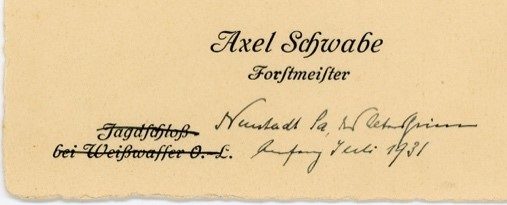 Axel Schwabe
Forstmeister
Jagdschloß
bei Weißwasser O.-L.
Neustadt Sa,
Anfang Juli 1931